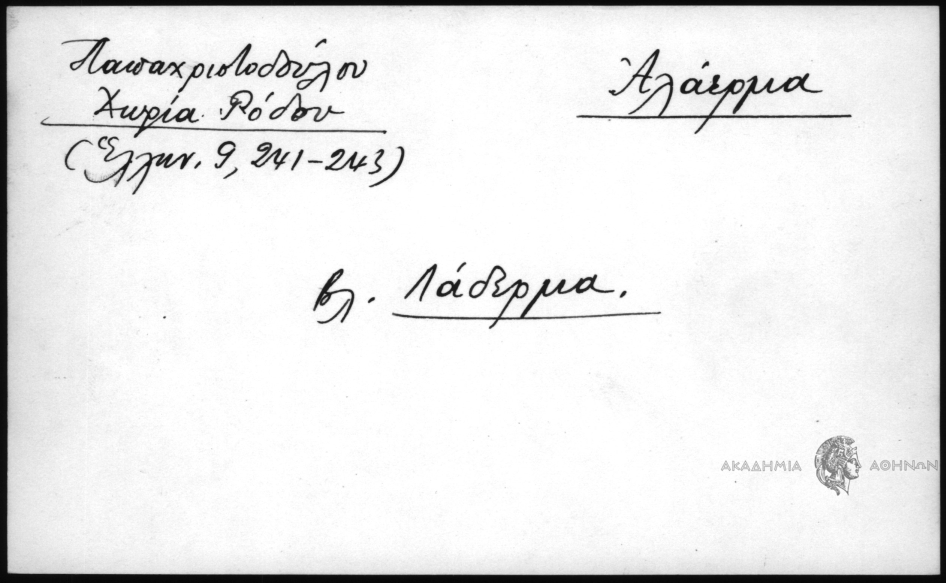 Παπαχριστοδούλου
Χωρία Ρόδου
(Ἑλλην. 9, 241-243)
Ἀλάερμα
βλ. Λάδερμα.
ΑΚΑΔΗΜΙΑ ΑΘΗΝΩΝ